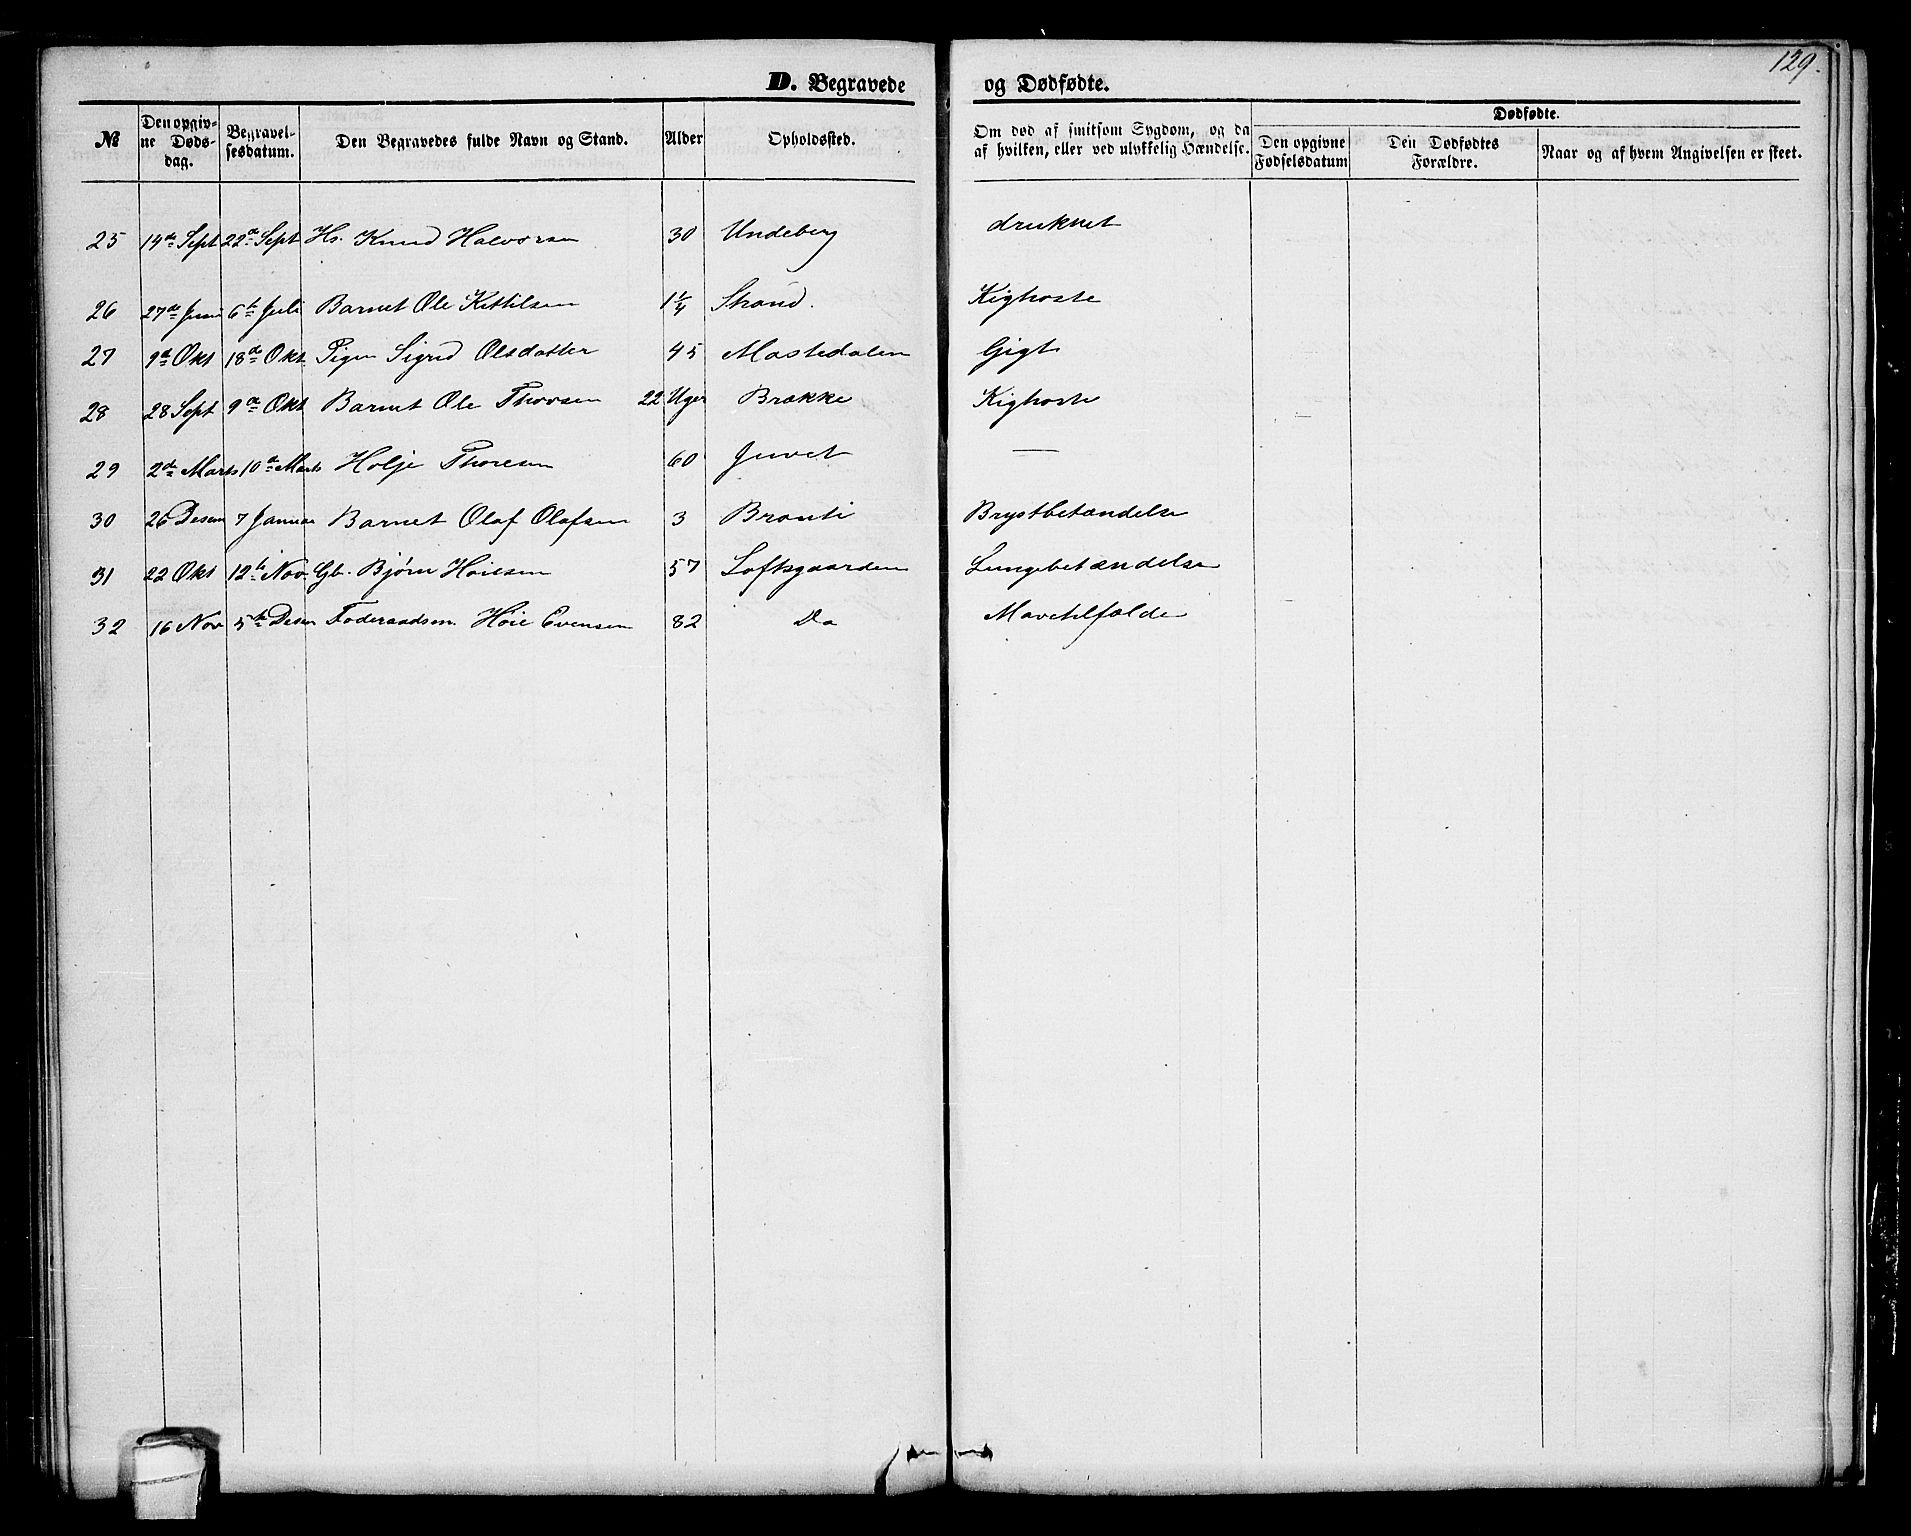 129.
D. Begravede og Dødfødte.
№ Den opgivne Dødsdag. Begravelsesdatum. Den Begravedes fulde Navn og Stand. Alder Opholdssted. Om død af smitsom Sygdom, og da af hvilken, eller ved ulykkelig Hændelse. Dødfødte. Den opgivne Fødselsdatum Den Dødfødtes Forældre. Naar og af hvem Angivelsen er skeet.
25 14de Sept 22de Sept Hs. Knud Halvorsen 30 Undeberg druknet
26 27de Juni 6te Juli Barnet Ole Kittilsen 1 1/4 Strand. Kighoste
27 9de Okt 18de Okt Pigen Sigrid Olsdatter 45 Mostedalen Gigt
28 28 Sept 9de Okt Barnet Ole Thorsen 22 Uger Brække Kighoste
29 2de Marts 10de Marts Holje Thoresen 60 Juvet —
30 26 Desem 7 Januar Barnet Olaf Olafsen 3 Bronti Brystbetændelse
31 22 Okt 12te Nov. Gb. Bjørn Høiesen 57 Loftsgaarden Lungebetændelse
32 16 Nov 5te Desem Foderaadsm. Høie Evensen 82 Do Mavetilfælde